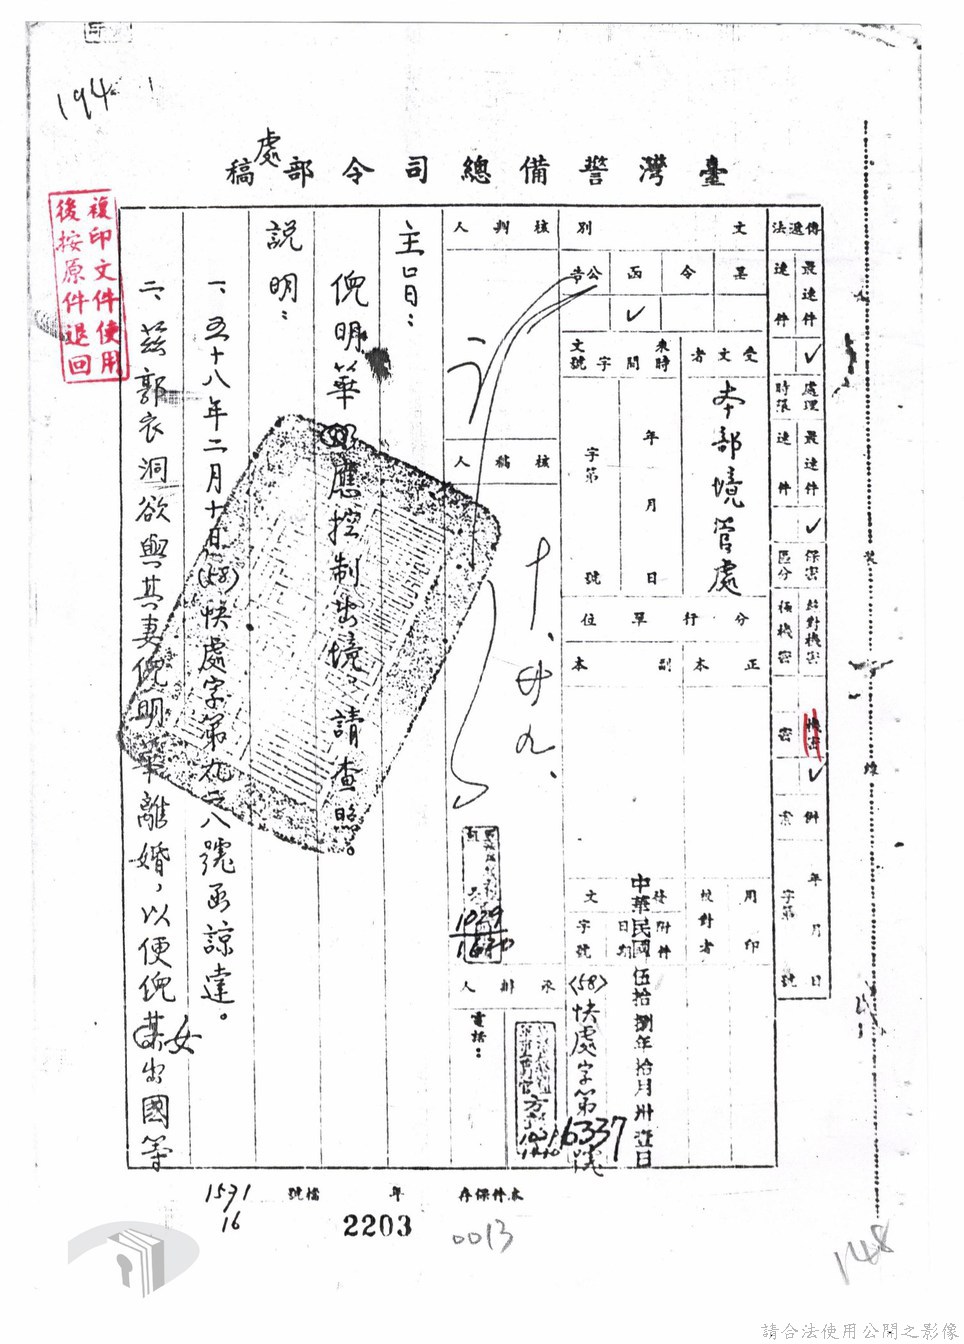 194
臺灣警備總司令部處稿
複印文件使用
後按原件退回
傳遞法
最速件
速件
✓
處理時限
最速件
速件
✓
保密區分
絕對機密
極機密
機密
密
✓
年 月 日
字第 號
文別
令
函
公告
✓
受文者
本部境管處
來文
時間
字號
年 月 日
字第 號
分行單位
正本
副本
用印
校對者
發文
附件
日期
字號
中華民國伍拾捌年拾月卅壹日
(58)快處字第6337號
核判人
核稿人
十、卅九、
1029
1630
承辦人
電話：
主旨：
倪明華應控制出境，請查照。
說明：
一、五十八年二月十日(58)快處字第九二八號函諒達。
二、茲郭衣洞欲與其妻倪明華離婚，以便倪女出國等
本件保存 年
檔號
1571
16
2203
0013
148
裝
線
請合法使用公開之影像